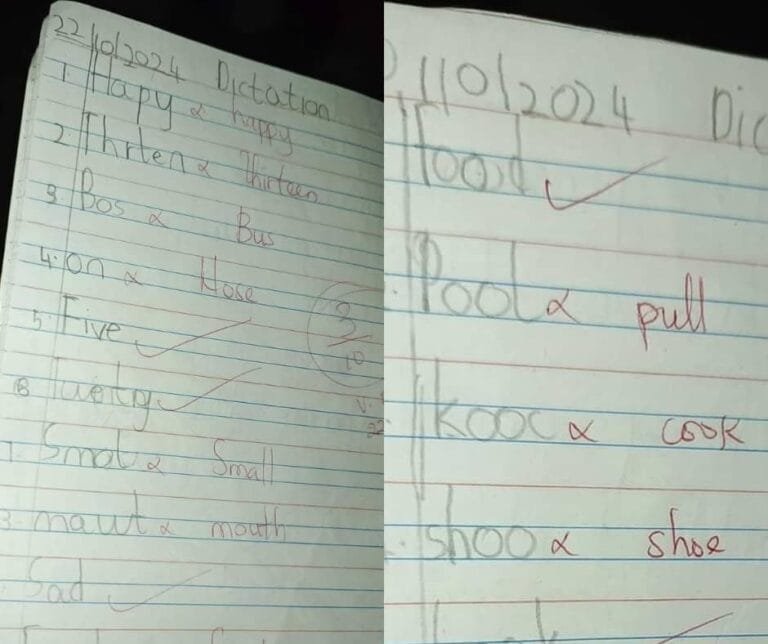 22/10/2024 Dictation
1. Hapy x happy
2 Thrten x Thirteen
3. Bos x Bus
4. on x Nose
5. Five ✓
3/10
7. Smol x Small
8. mawt x mouth
Sad ✓
/10/2024 Dic
food ✓
Pool x pull
kooc x cook
shoo x shoe